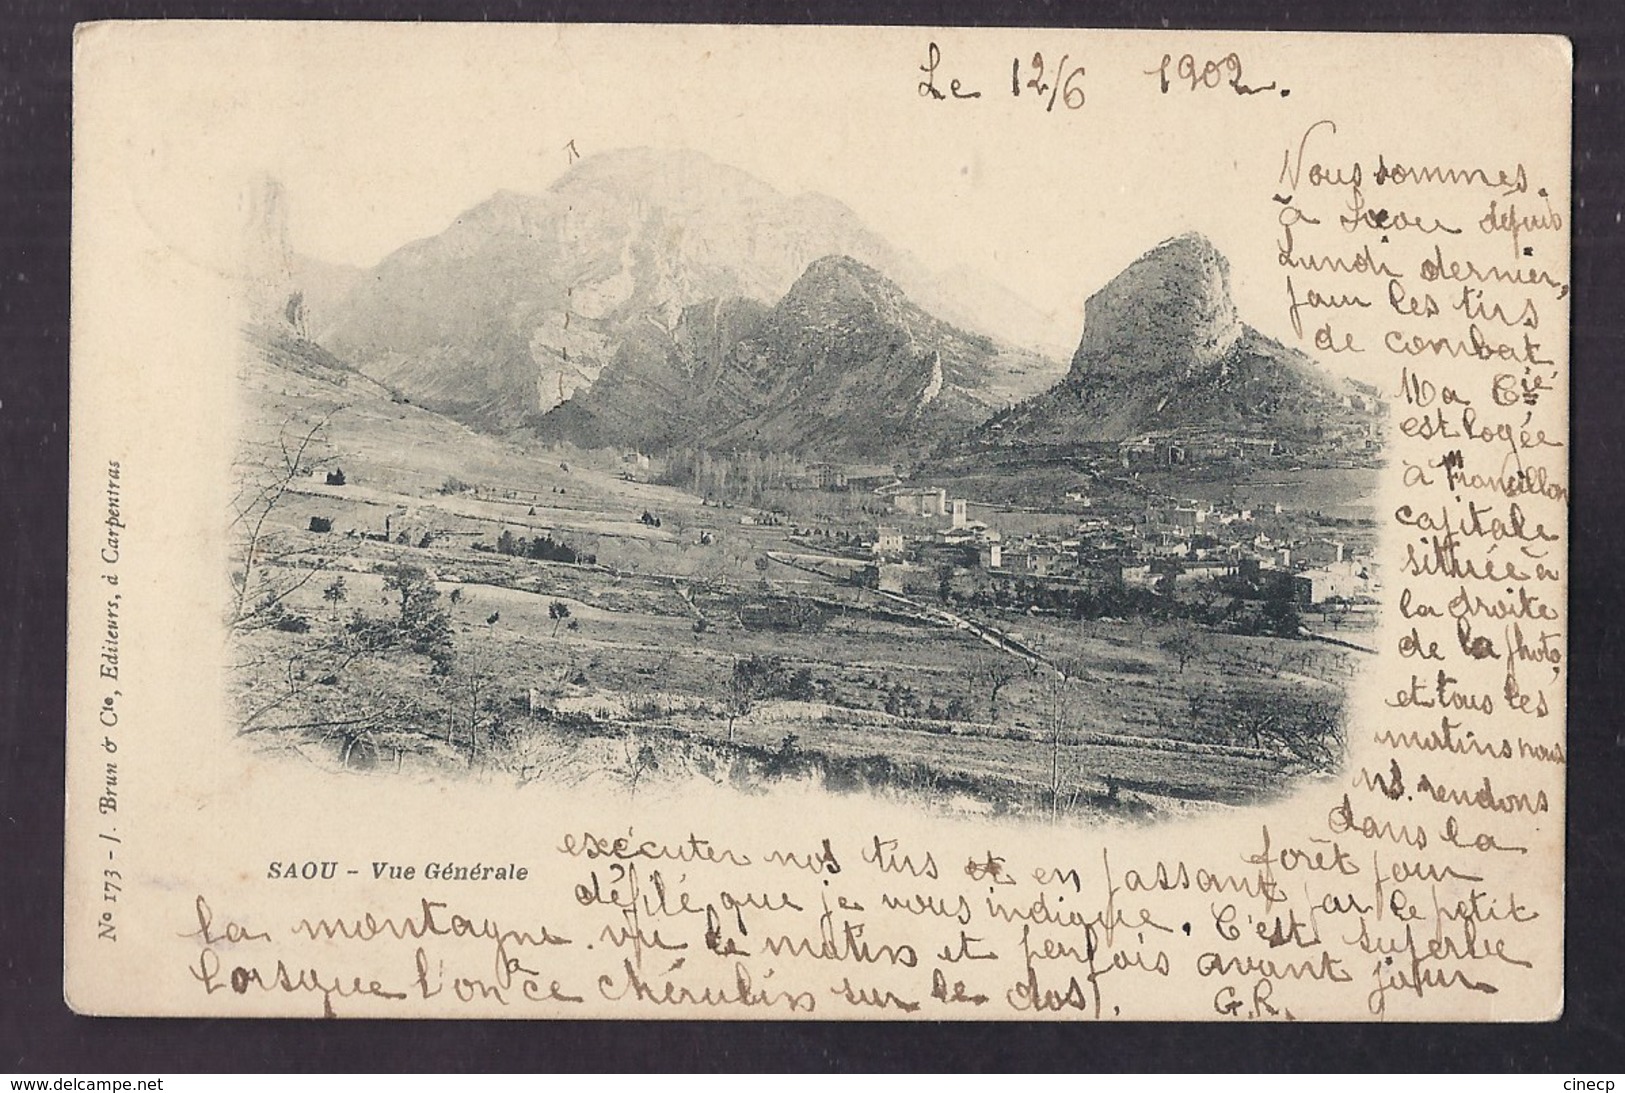 Le 12/6 1902.
Nous sommes
à Saou dépuis
Lundi dernier,
pour les tirs
de combat
Ma Cie
est logée
à Francillon
capitale
sittuée à
la droite
de la photo,
et tous les
matins nous
ns. rendons
dans la
forêt pour
exécuter nos tirs et en passant par le petit
défilé que je vous indique. C'est superbe
la montagne vu le matin et parfois avant jour
Lorsque l'on a ce chérubin sur le dos.
G.R.
SAOU - Vue Générale
No 173 - J. Brun & Cie, Editeurs, à Carpentras
Delcampe.net
cinecp